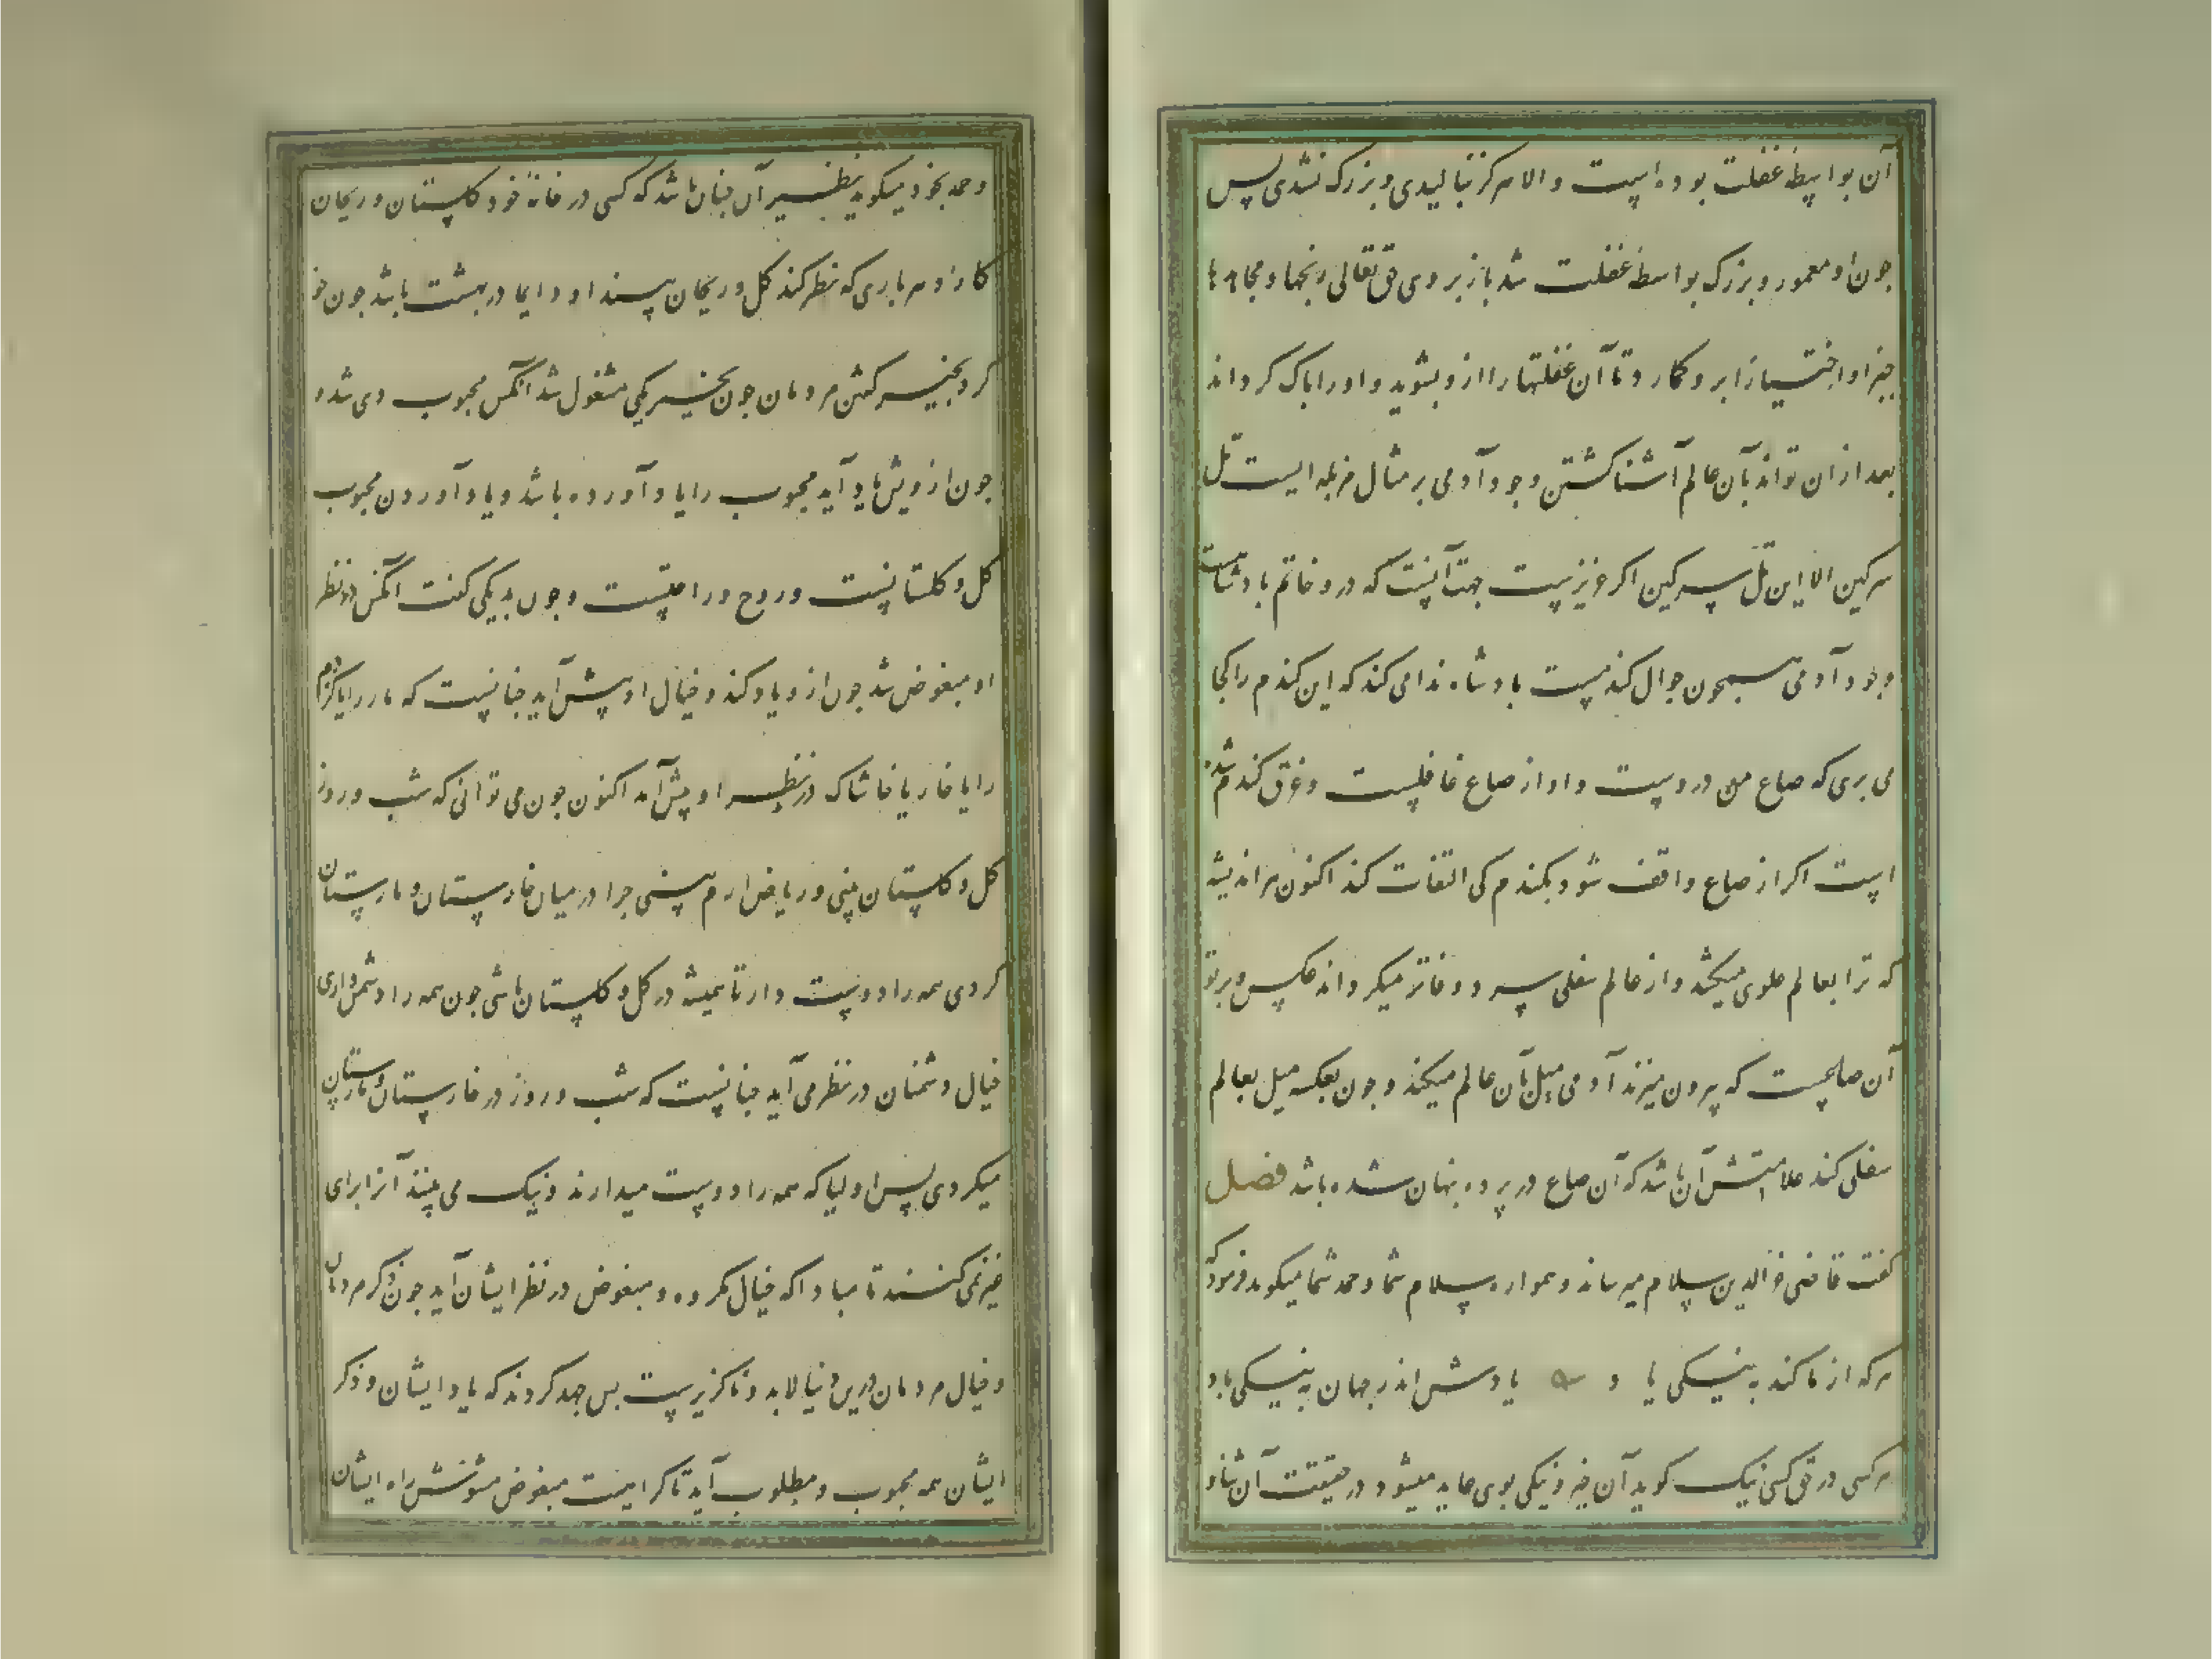 آن بواسطهٔ غفلت بوده است و الا هرکز نبالیدی و بزرک نشدی پس
چون او معمور و بزرک بواسطهٔ غفلت شد باز بر وی حق تعالی رنجها و مجاهدها
جبرا و اختیارا برو کمارد تا آن غفلتها را ازو بشوید و او را پاک کرداند
بعد از ان تواند بآن عالم آشنا کشتن وجود آدمی بر مثال مزبله ایست تل
سرکین الا این تل سرکین اکر عزیزست جهت آنست که درو خاتم پادشاست
وجود آدمی همچون جوال کندمست پادشاه ندا می کند که این کندم را کجا
می بری که صاع من دروست و او از صاع غافلست و غرق کندم شده
است اکر از صاع واقف شود بکندم کی التفات کند اکنون هر اندیشه
که ترا بعالم علوی میکشد و از عالم سفلی سرد و فاتر میکرداند عکس و پرتو
آن صاعیست که بیرون میزند آدمی میل بآن عالم میکند و چون بعکسه میل بعالم
سفلی کند علامتش آن باشد که آن صاع در پرده پنهان شده باشد فصل
کفت قاضی عزالدین سلام میرساند و همواره سلام شما و حمد شما میکوید فرمود که
هر که از ما کند به نیکی یاد یادش اندر جهان به نیکی باد
هر کسی در حق کسی نیک کوید آن خیر و نیکی بوی عاید میشود و در حقیقت آن ثنا و
و حمد بخود میکوید نظیر آن چنان باشد که کسی در خانهٔ خود کلستان و ریحان
کارد و هر باری که نظر کند کل و ریحان بیند او دایما در بهشت باشد چون خو
کرد بخیر کفتن مردمان چون بخیر یکی مشغول شد آنکس محبوب وی شد و
چون از ویش یاد آید محبوب را یاد آورده باشد و یاد آوردن محبوب
کل و کلستانست و روح و راحتست و چون بد یکی کفت آنکس در نظر
او مبغوض شد چون از و یاد کند و خیال او پیش آید چنانست که مار یا کژدم
را یا خار یا خاشاک در نظر او پیش آمد اکنون چون می توانی که شب و روز
کل و کلستان بینی و ریاض ارم بینی چرا در میان خارستان و مارستان
کردی همه را دوست دار تا همیشه در کل و کلستان باشی چون همه را دشمن داری
خیال دشمنان در نظر می آید چنانست که شب و روز در خارستان و مارستان
میکردی پس اولیا که همه را دوست میدارند و نیک می بینند آنرا برای
خیر نمی کنند تا مبادا که خیال مکروه و مبغوض در نظر ایشان آید چون ذکر مردمان
و خیال مردمان درین دنیا لابد و ناکزیرست پس جهد کردند که یاد ایشان و ذکر
ایشان همه محبوب و مطلوب آید تا کراهت مبغوض مشوش راه ایشان